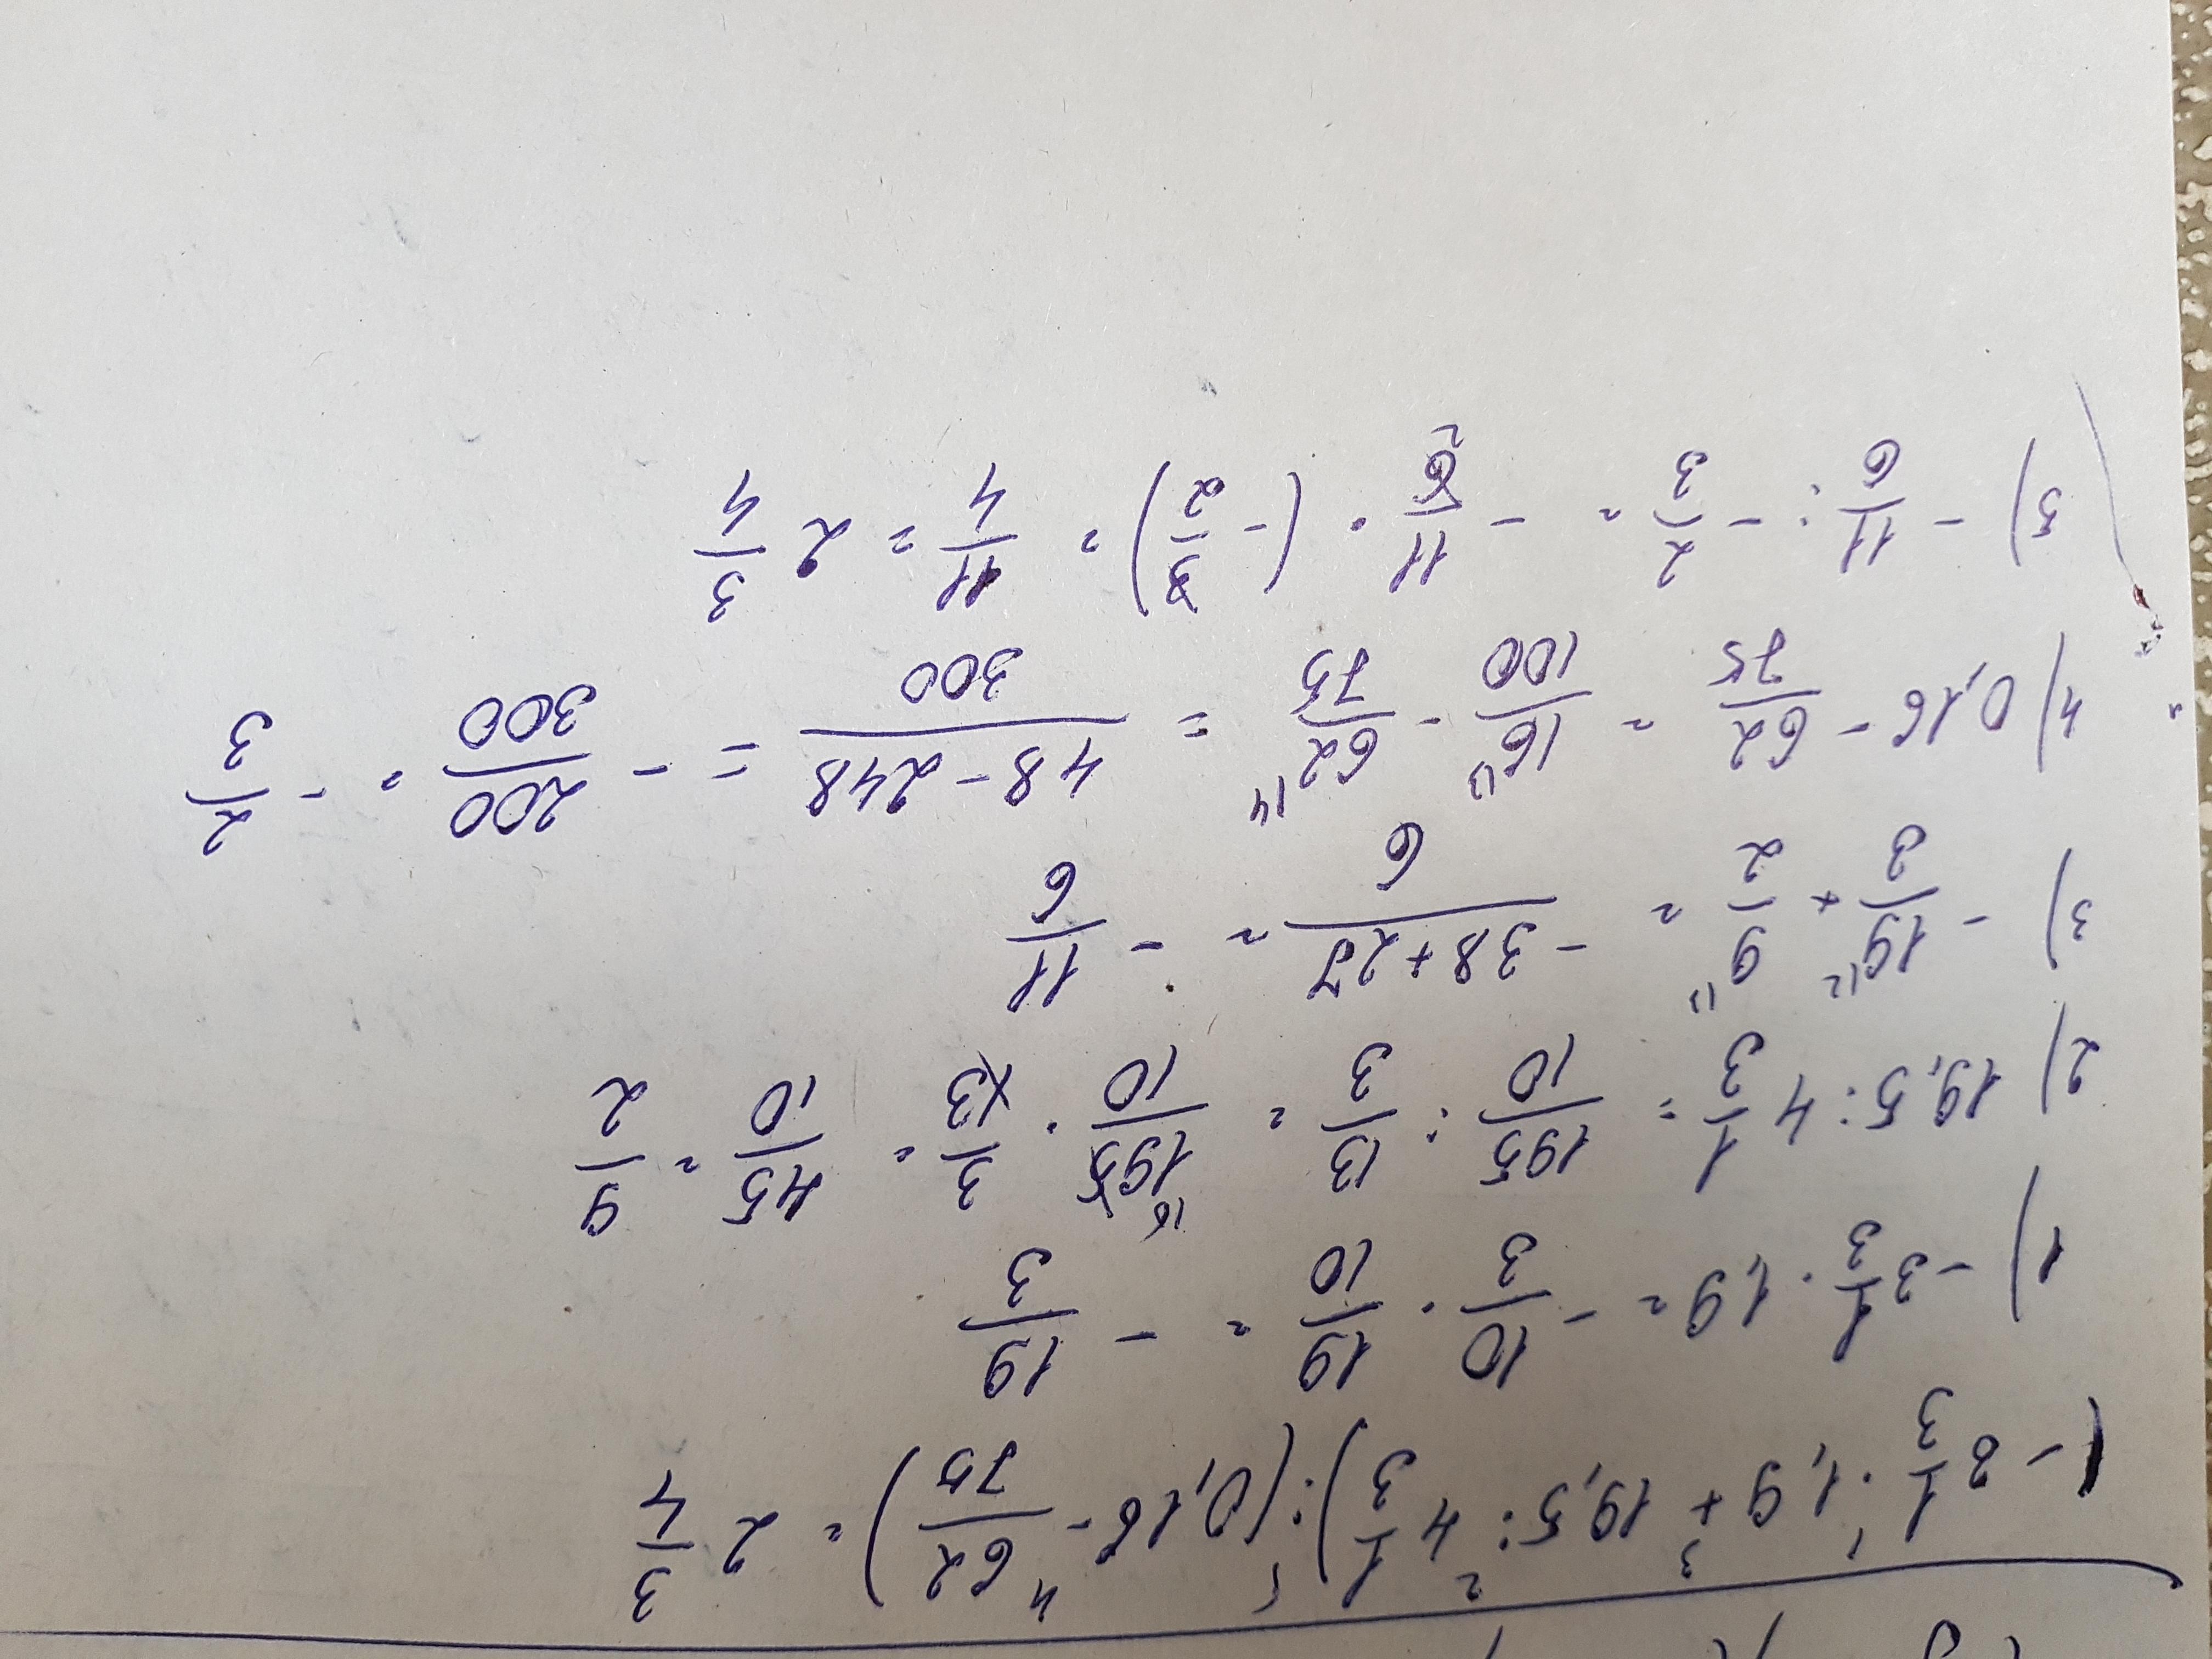 (-3 1/3 · 1,9 + 19,5 : 4 1/3) : (0,16 - 62/75) = 2 3/4
1) -3 1/3 · 1,9 = - 10/3 · 19/10 = - 19/3
2) 19,5 : 4 1/3 = 195/10 : 13/3 = 195/10 · 3/13 = 45/10 = 9/2
3) - 19/3 + 9/2 = (-38+27)/6 = - 11/6
4) 0,16 - 62/75 = 16/100 - 62/75 = (48-248)/300 = - 200/300 = - 2/3
5) - 11/6 : - 2/3 = - 11/6 · (- 3/2) = 11/4 = 2 3/4